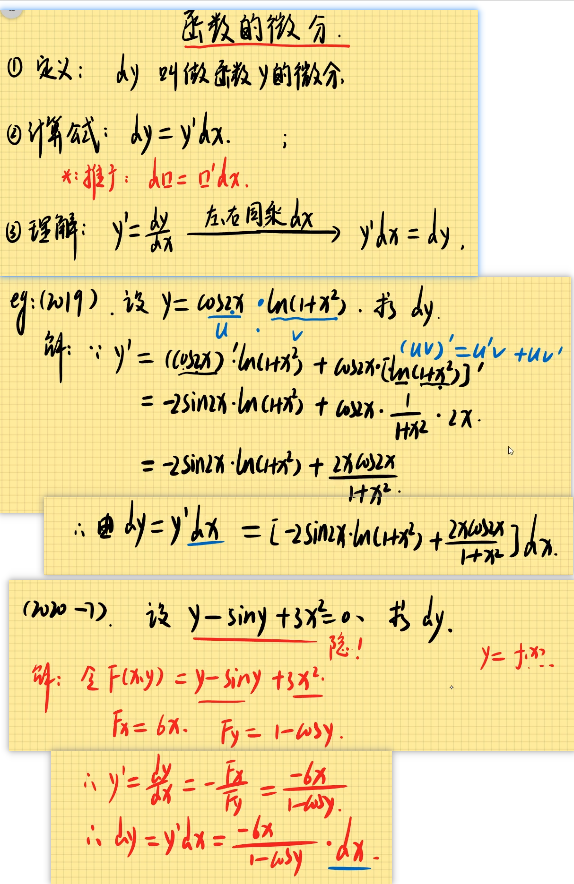 函数的微分.
① 定义: dy 叫做函数y的微分.
② 计算公式: dy = y'dx. ;
*: 推广: d□ = □'dx.
③ 理解: y' = dy/dx 左、右同乘dx → y'dx = dy.
eg: (2019). 设 y = cos2x · ln(1+x²). 求 dy.
u · v
(uv)' = u'v + uv'
解: ∵ y' = (cos2x)'·ln(1+x²) + cos2x·[ln(1+x²)]'
= -2sin2x·ln(1+x²) + cos2x · 1/(1+x²) · 2x.
= -2sin2x·ln(1+x²) + 2xcos2x/(1+x²).
∴ dy = y'dx = [-2sin2x·ln(1+x²) + 2xcos2x/(1+x²)]dx.
(2020-7). 设 y - siny + 3x² = 0、求 dy.
隐!
y =
解: 令 F(x,y) = y - siny + 3x².
Fx = 6x. Fy = 1 - cosy.
∴ y' = dy/dx = - Fx/Fy = -6x/(1-cosy).
∴ dy = y'dx = -6x/(1-cosy) · dx.